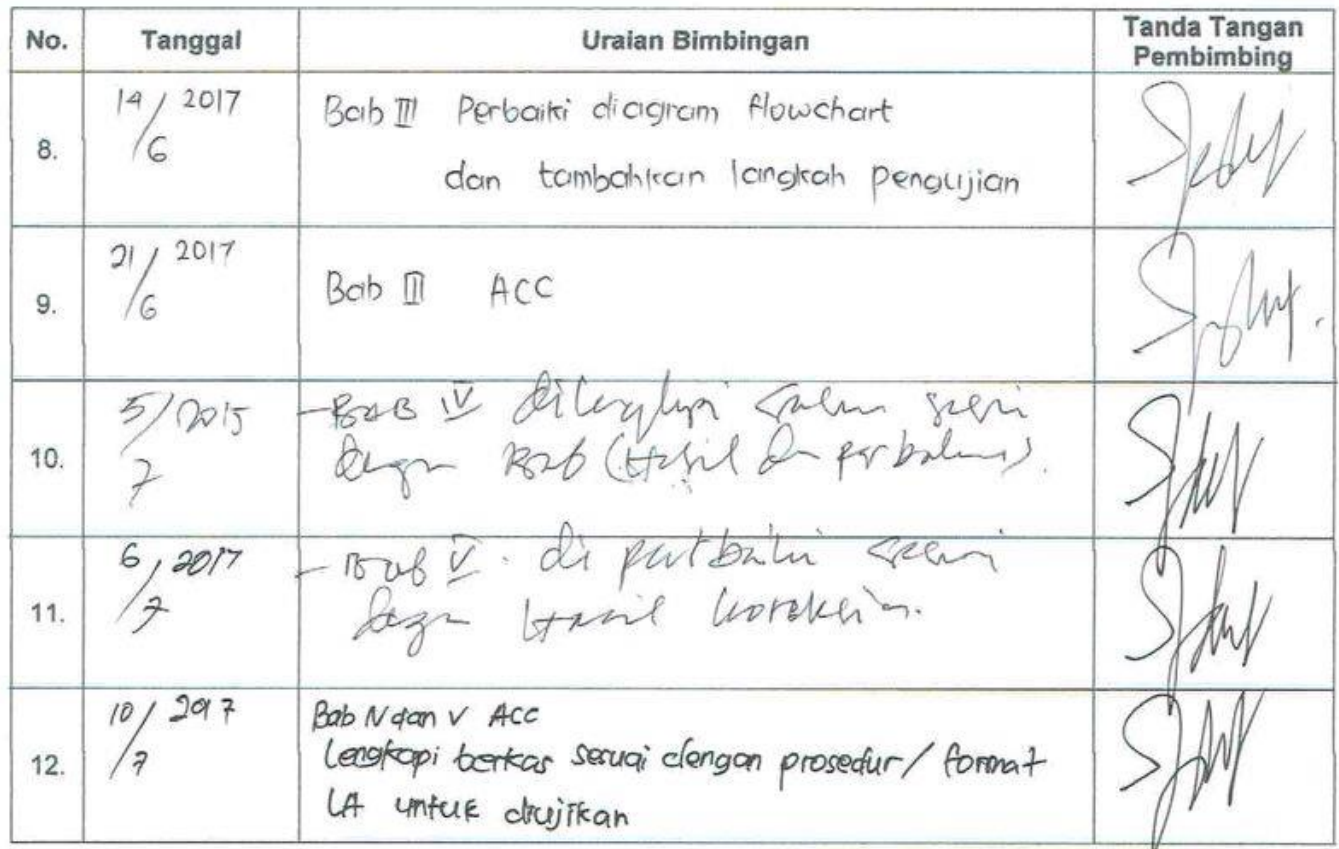 No. Tanggal Uraian Bimbingan Tanda Tangan
Pembimbing
8. 14/6 2017 Bab III Perbaiki diagram flowchart
dan tambahkan langkah pengujian
9. 21/6 2017 Bab III ACC
10. 5/7 2015 - BAB IV dilengkapi
Bab (Hasil dan
11. 6/7 2017 - Bab V. di perbaiki sesuai
dengan Hasil koreksian.
12. 10/7 2017 Bab IV dan V ACC
Lengkapi berkas sesuai dengan prosedur / format
LA untuk diujikan